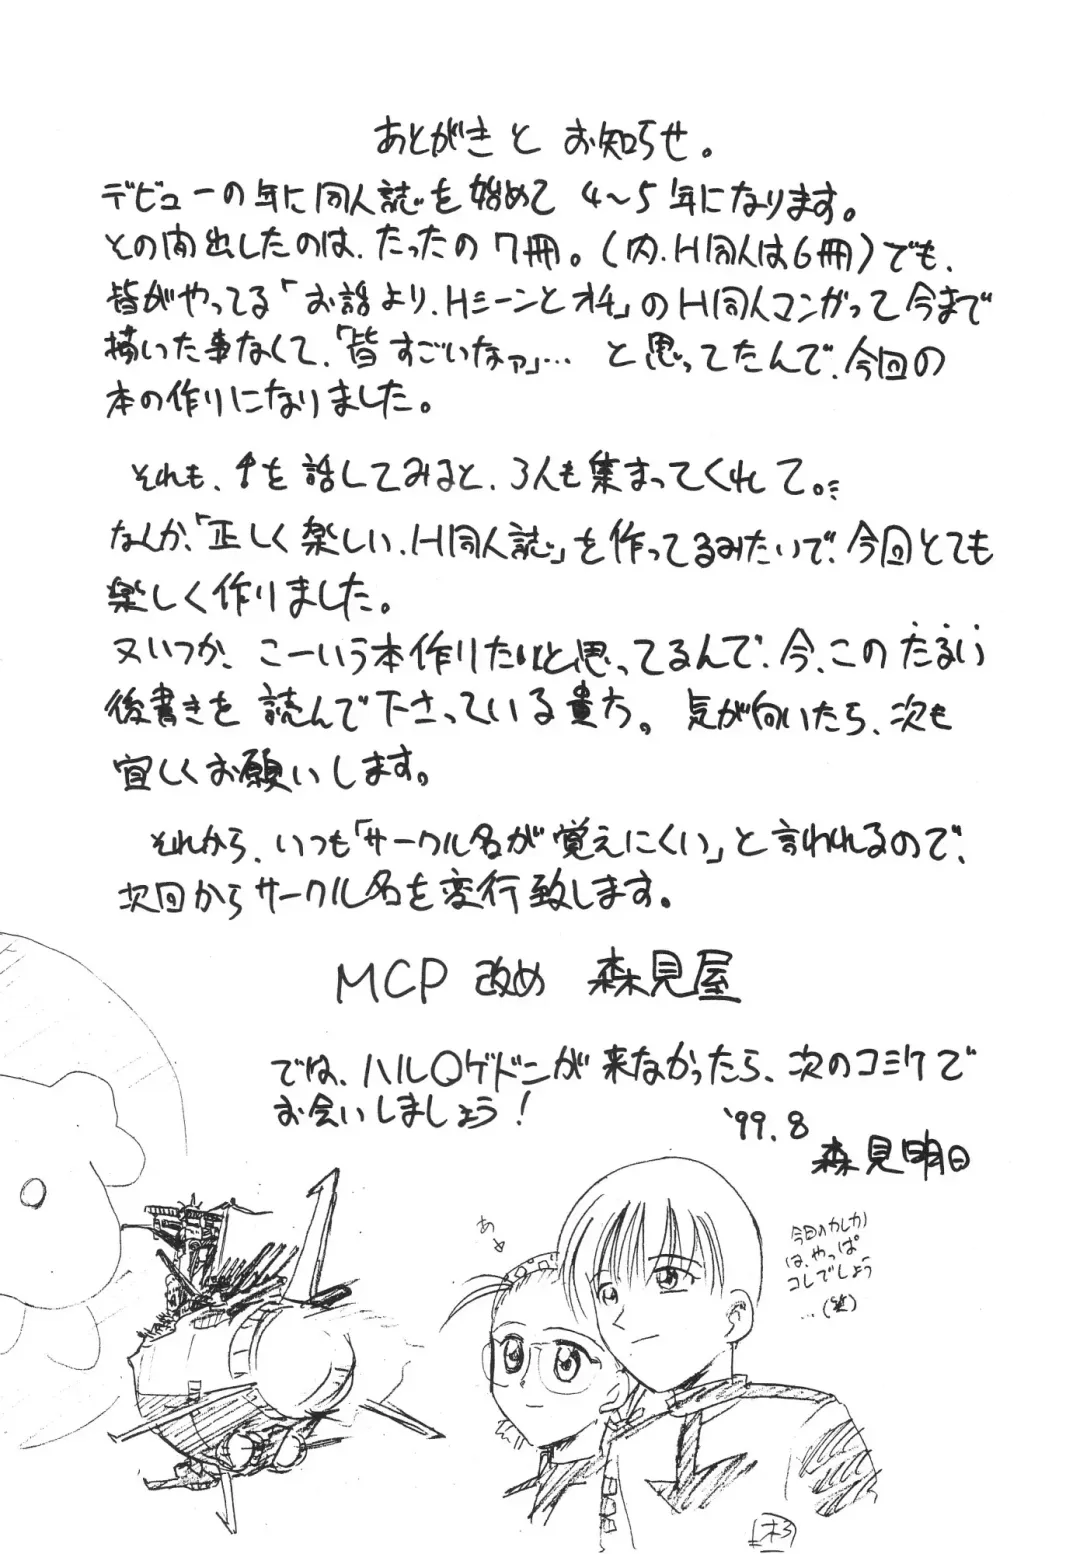 あとがきと お知らせ。
デビューの年に同人誌を始めて 4〜5年になります。
その間出したのは、たったの7冊。(内、H同人は6冊)でも、
皆がやってる「お話より、Hシーンとオチ」のH同人マンガって今まで
描いた事なくて、「皆すごいなァ」… と思ってたんで、今回の
本の作りになりました。
それも、↑を話してみると、3人も集まってくれて。
なんか、「正しく楽しい、H同人誌」を作ってるみたいで、今回とても
楽しく作りました。
又いつか、こーいう本作りたいと思ってるんで、今、このたるい
後書きを読んで下さっている貴方。気が向いたら、次も
宜しくお願いします。
それから、いつも「サークル名が覚えにくい」と言われるので、
次回からサークル名を変行致します。
MCP 改め 森見屋
では、ハル○ゲドンが来なかったら、次のコミケで
お会いしましょう!
'99.8
森見明日
あ
今回のカレカノ
は、やっぱ
コレでしょう
…(笑)